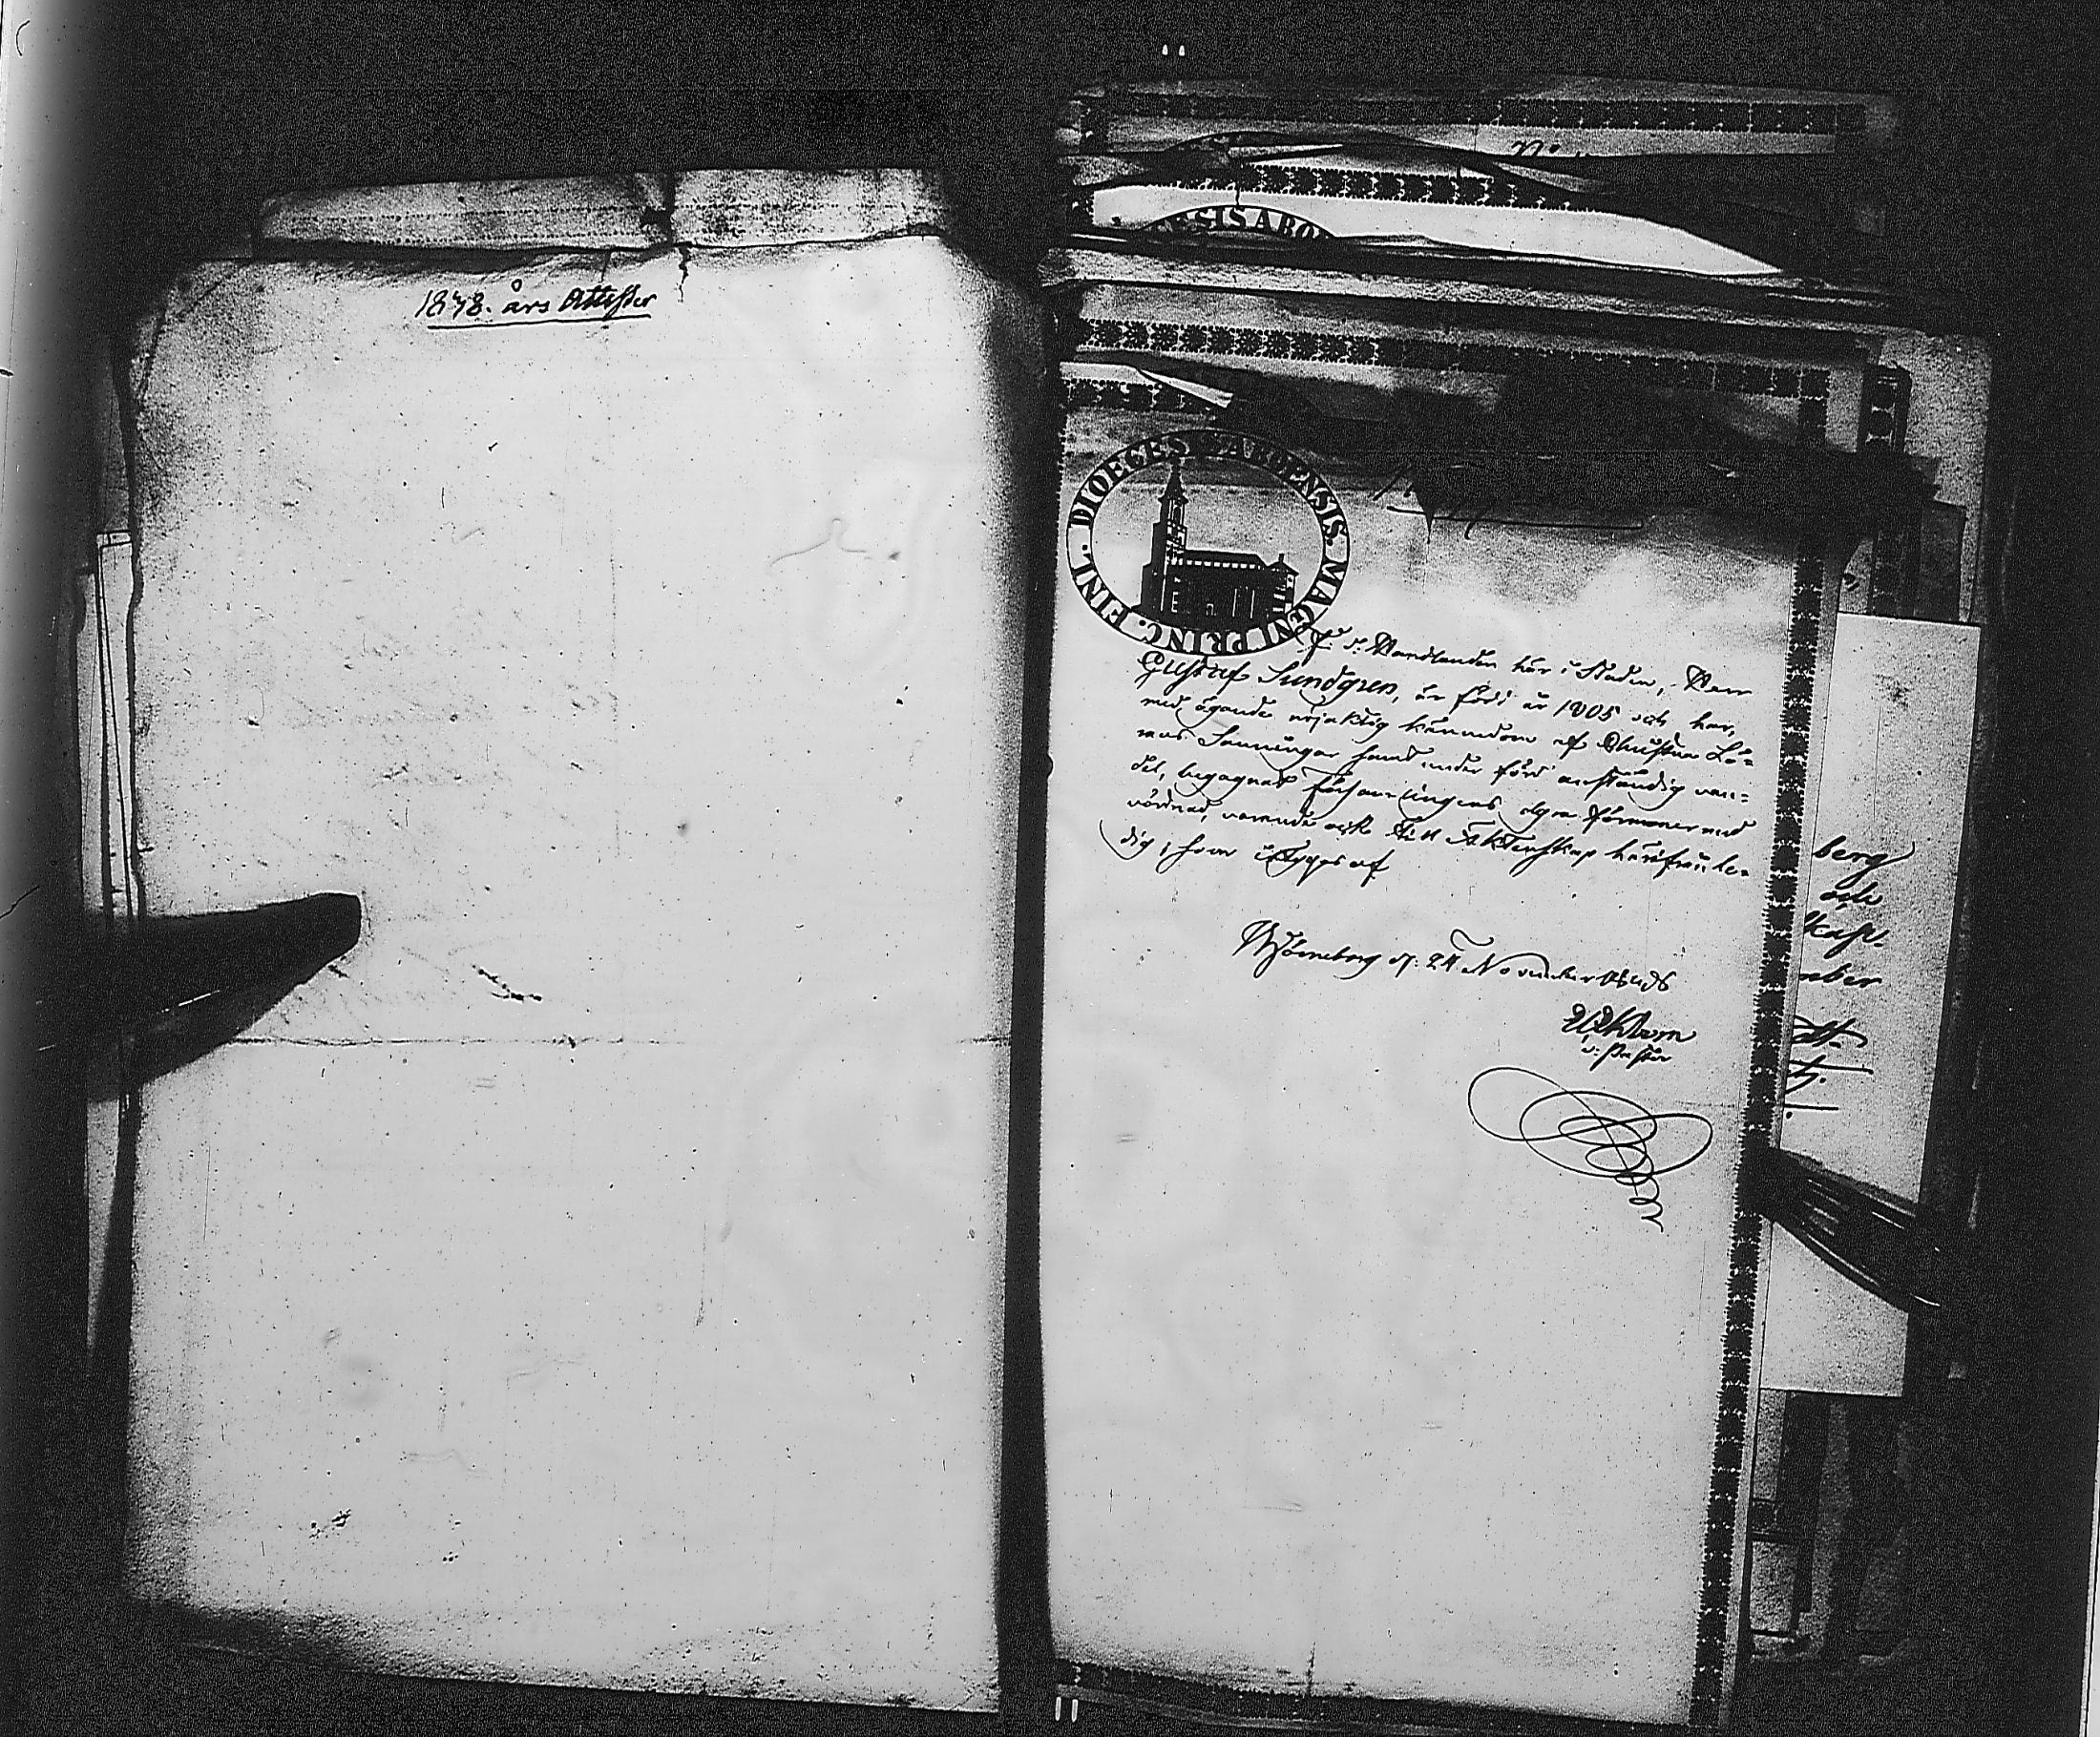 1848. års Attester
ESIS ABO
DIOECESIS ABOENSIS. MAGNI PRINC. FINL.
F. d. Handlanden här i Staden, Herr
Gustaf Sundgren, är född år 1805 och har,
med ägande nöjaktig kännedom af Christna Lä-
rans Sanningar samt under förd anständig van-
del, begagnat församlingens dyra förmoner med
vördnad, varande ock till Äktenskap härifrån le-
dig; som intygas af
Björneborg d. 24 November 1848
v. Pastor
berg
och
Kap.
mber